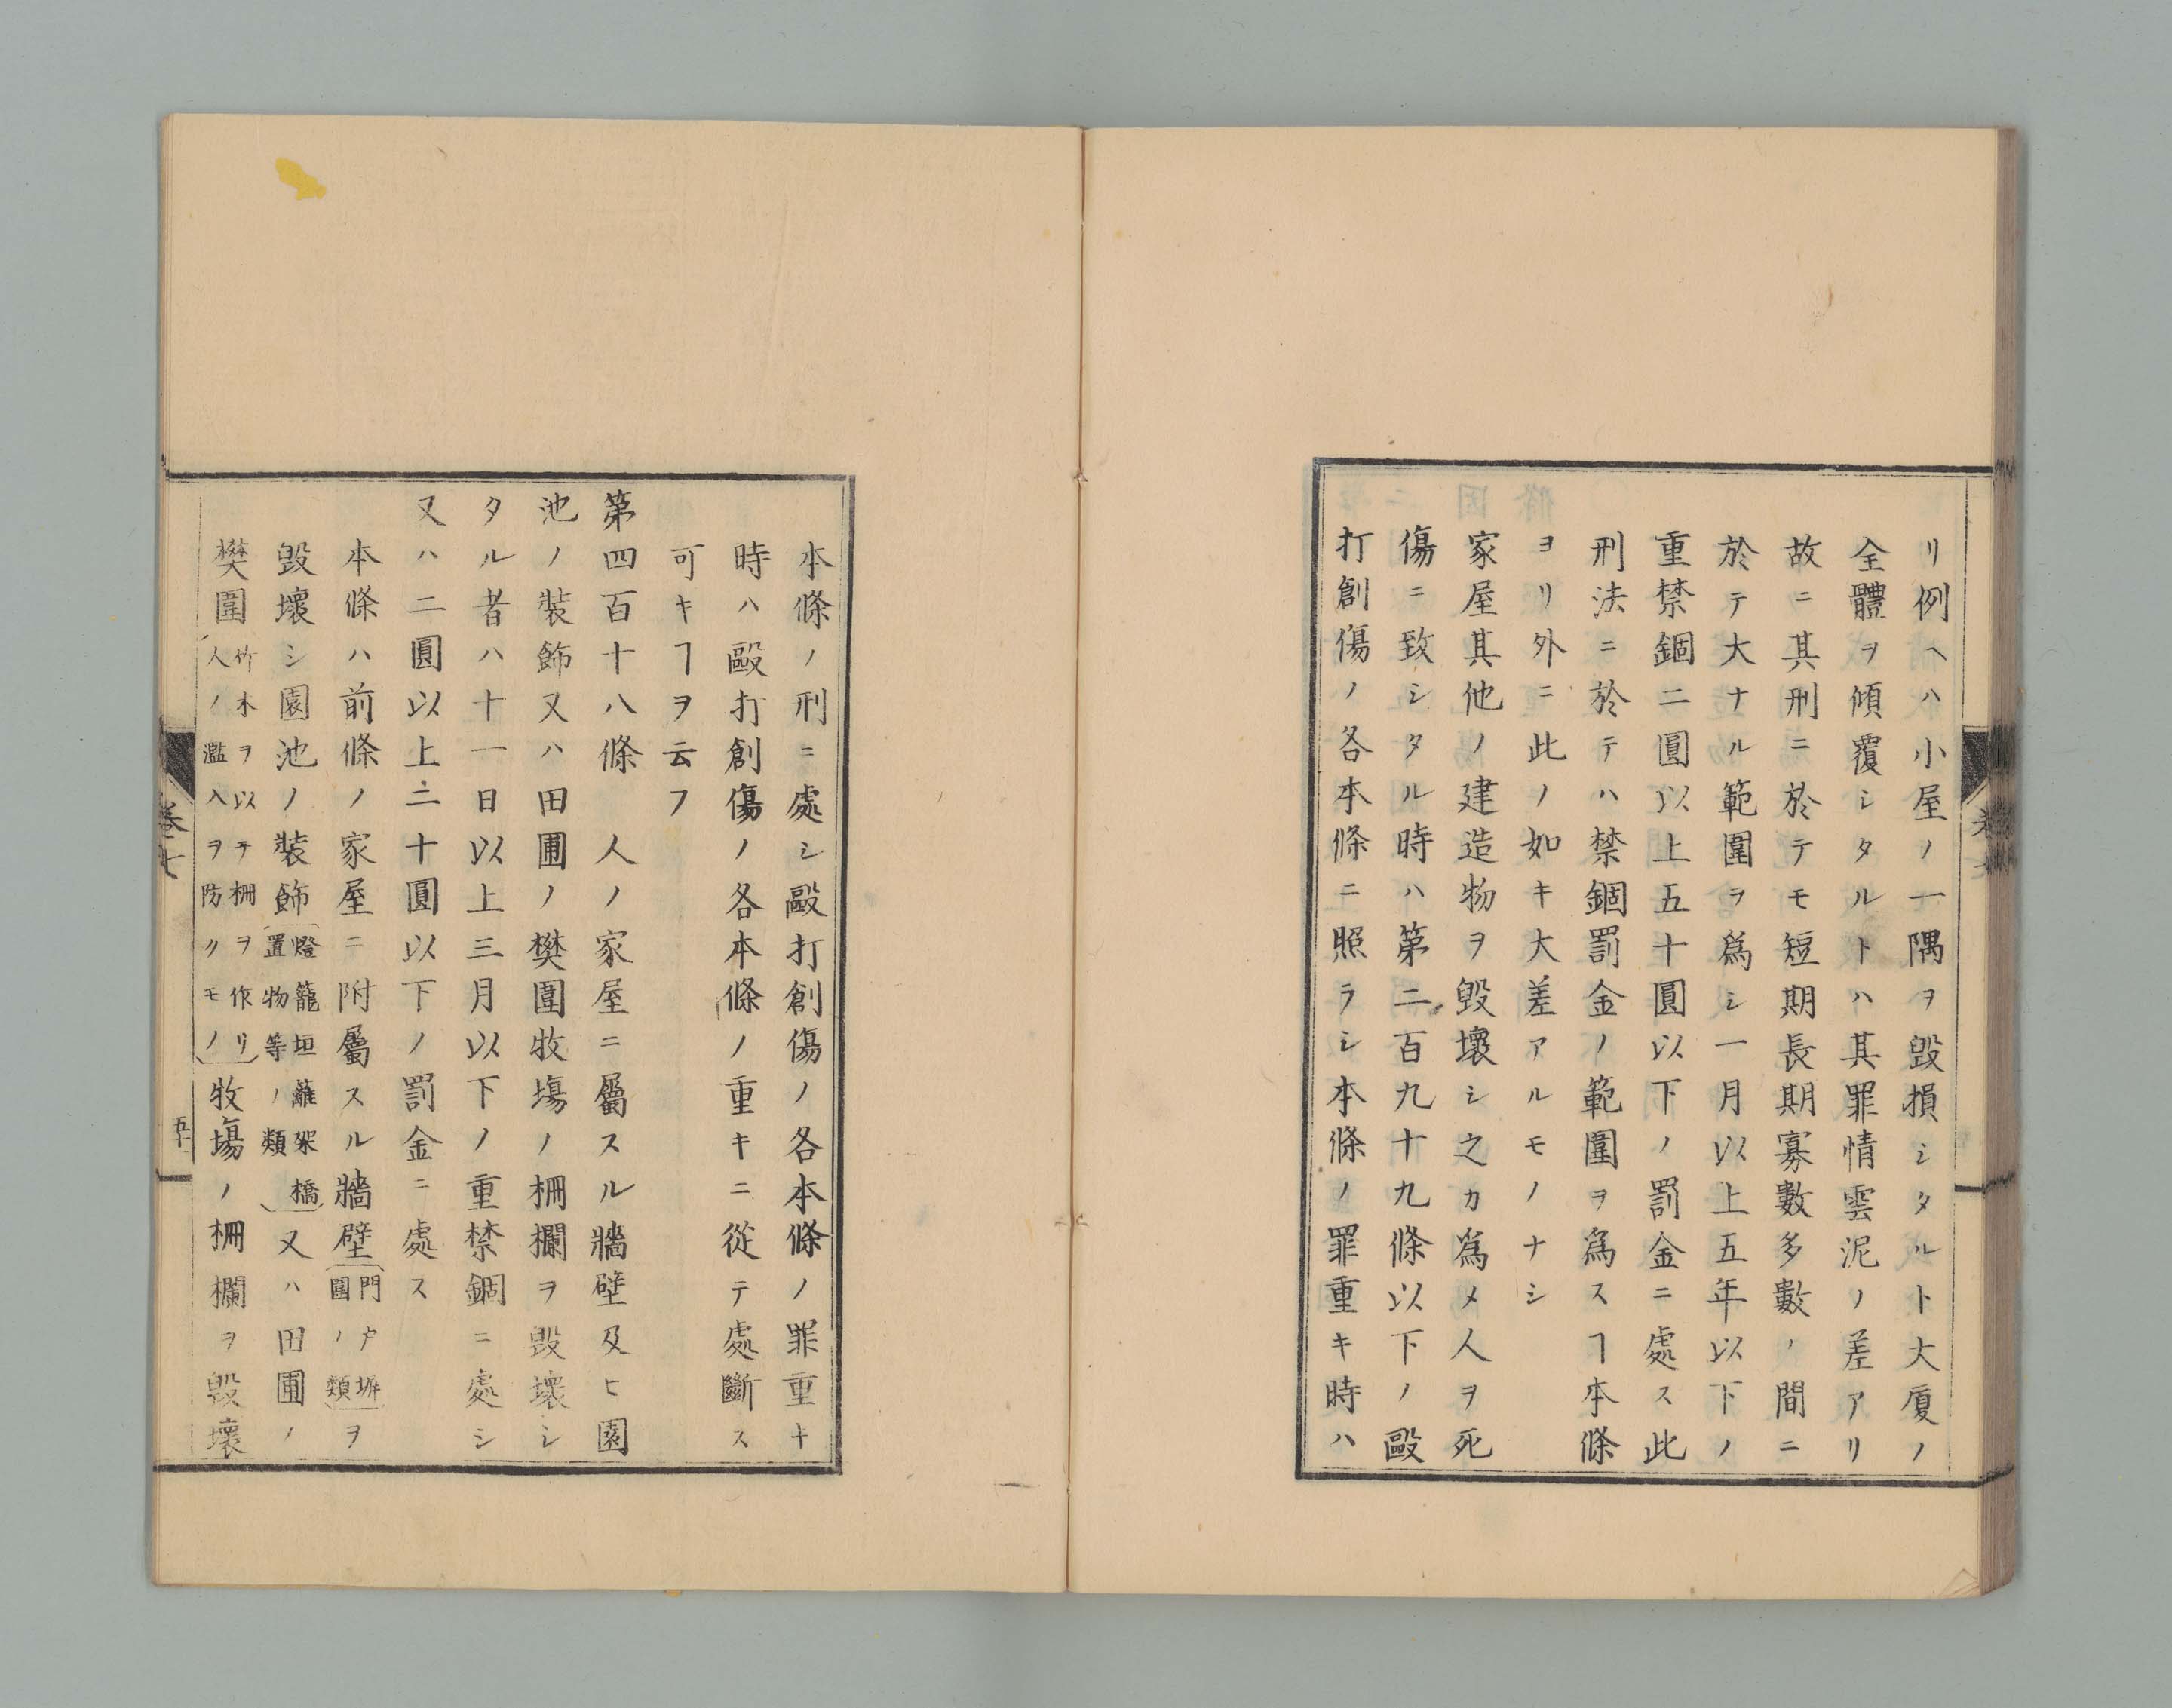 リ例ヘハ小屋ノ一隅ヲ毀損シタルト大厦ノ
全體ヲ傾覆シタルトハ其罪情雲泥ノ差アリ
故ニ其刑ニ於テモ短期長期寡數多數ノ間ニ
於テ大ナル範圍ヲ爲シ一月以上五年以下ノ
重禁錮二圓以上五十圓以下ノ罰金ニ處ス此
刑法ニ於テハ禁錮罰金ノ範圍ヲ爲スヿ本條
ヨリ外ニ此ノ如キ大差アルモノナシ
家屋其他ノ建造物ヲ毀壞シ之カ爲メ人ヲ死
傷ニ致シタル時ハ第二百九十九條以下ノ毆
打創傷ノ各本條ニ照ラシ本條ノ罪重キ時ハ
本條ノ刑ニ處シ毆打創傷ノ各本條ノ罪重キ
時ハ毆打創傷ノ各本條ノ重キニ從テ處斷ス
可キヿヲ云フ
第四百十八條 人ノ家屋ニ屬スル牆壁及ヒ園
池ノ裝飾又ハ田圃ノ樊圍牧塲ノ柵欄ヲ毀壞シ
タル者ハ十一日以上三月以下ノ重禁錮ニ處シ
又ハ二圓以上三十圓以下ノ罰金ニ處ス
本條ハ前條ノ家屋ニ附屬スル牆壁(門戸塀圍ノ類)ヲ
毀壞シ園池ノ裝飾(燈籠垣籬架橋置物等ノ類)又ハ田圃ノ
樊圍(竹木ヲ以テ柵ヲ作リ人ノ濫入ヲ防クモノ)牧塲ノ柵欄ヲ毀壞
卷七
五十一